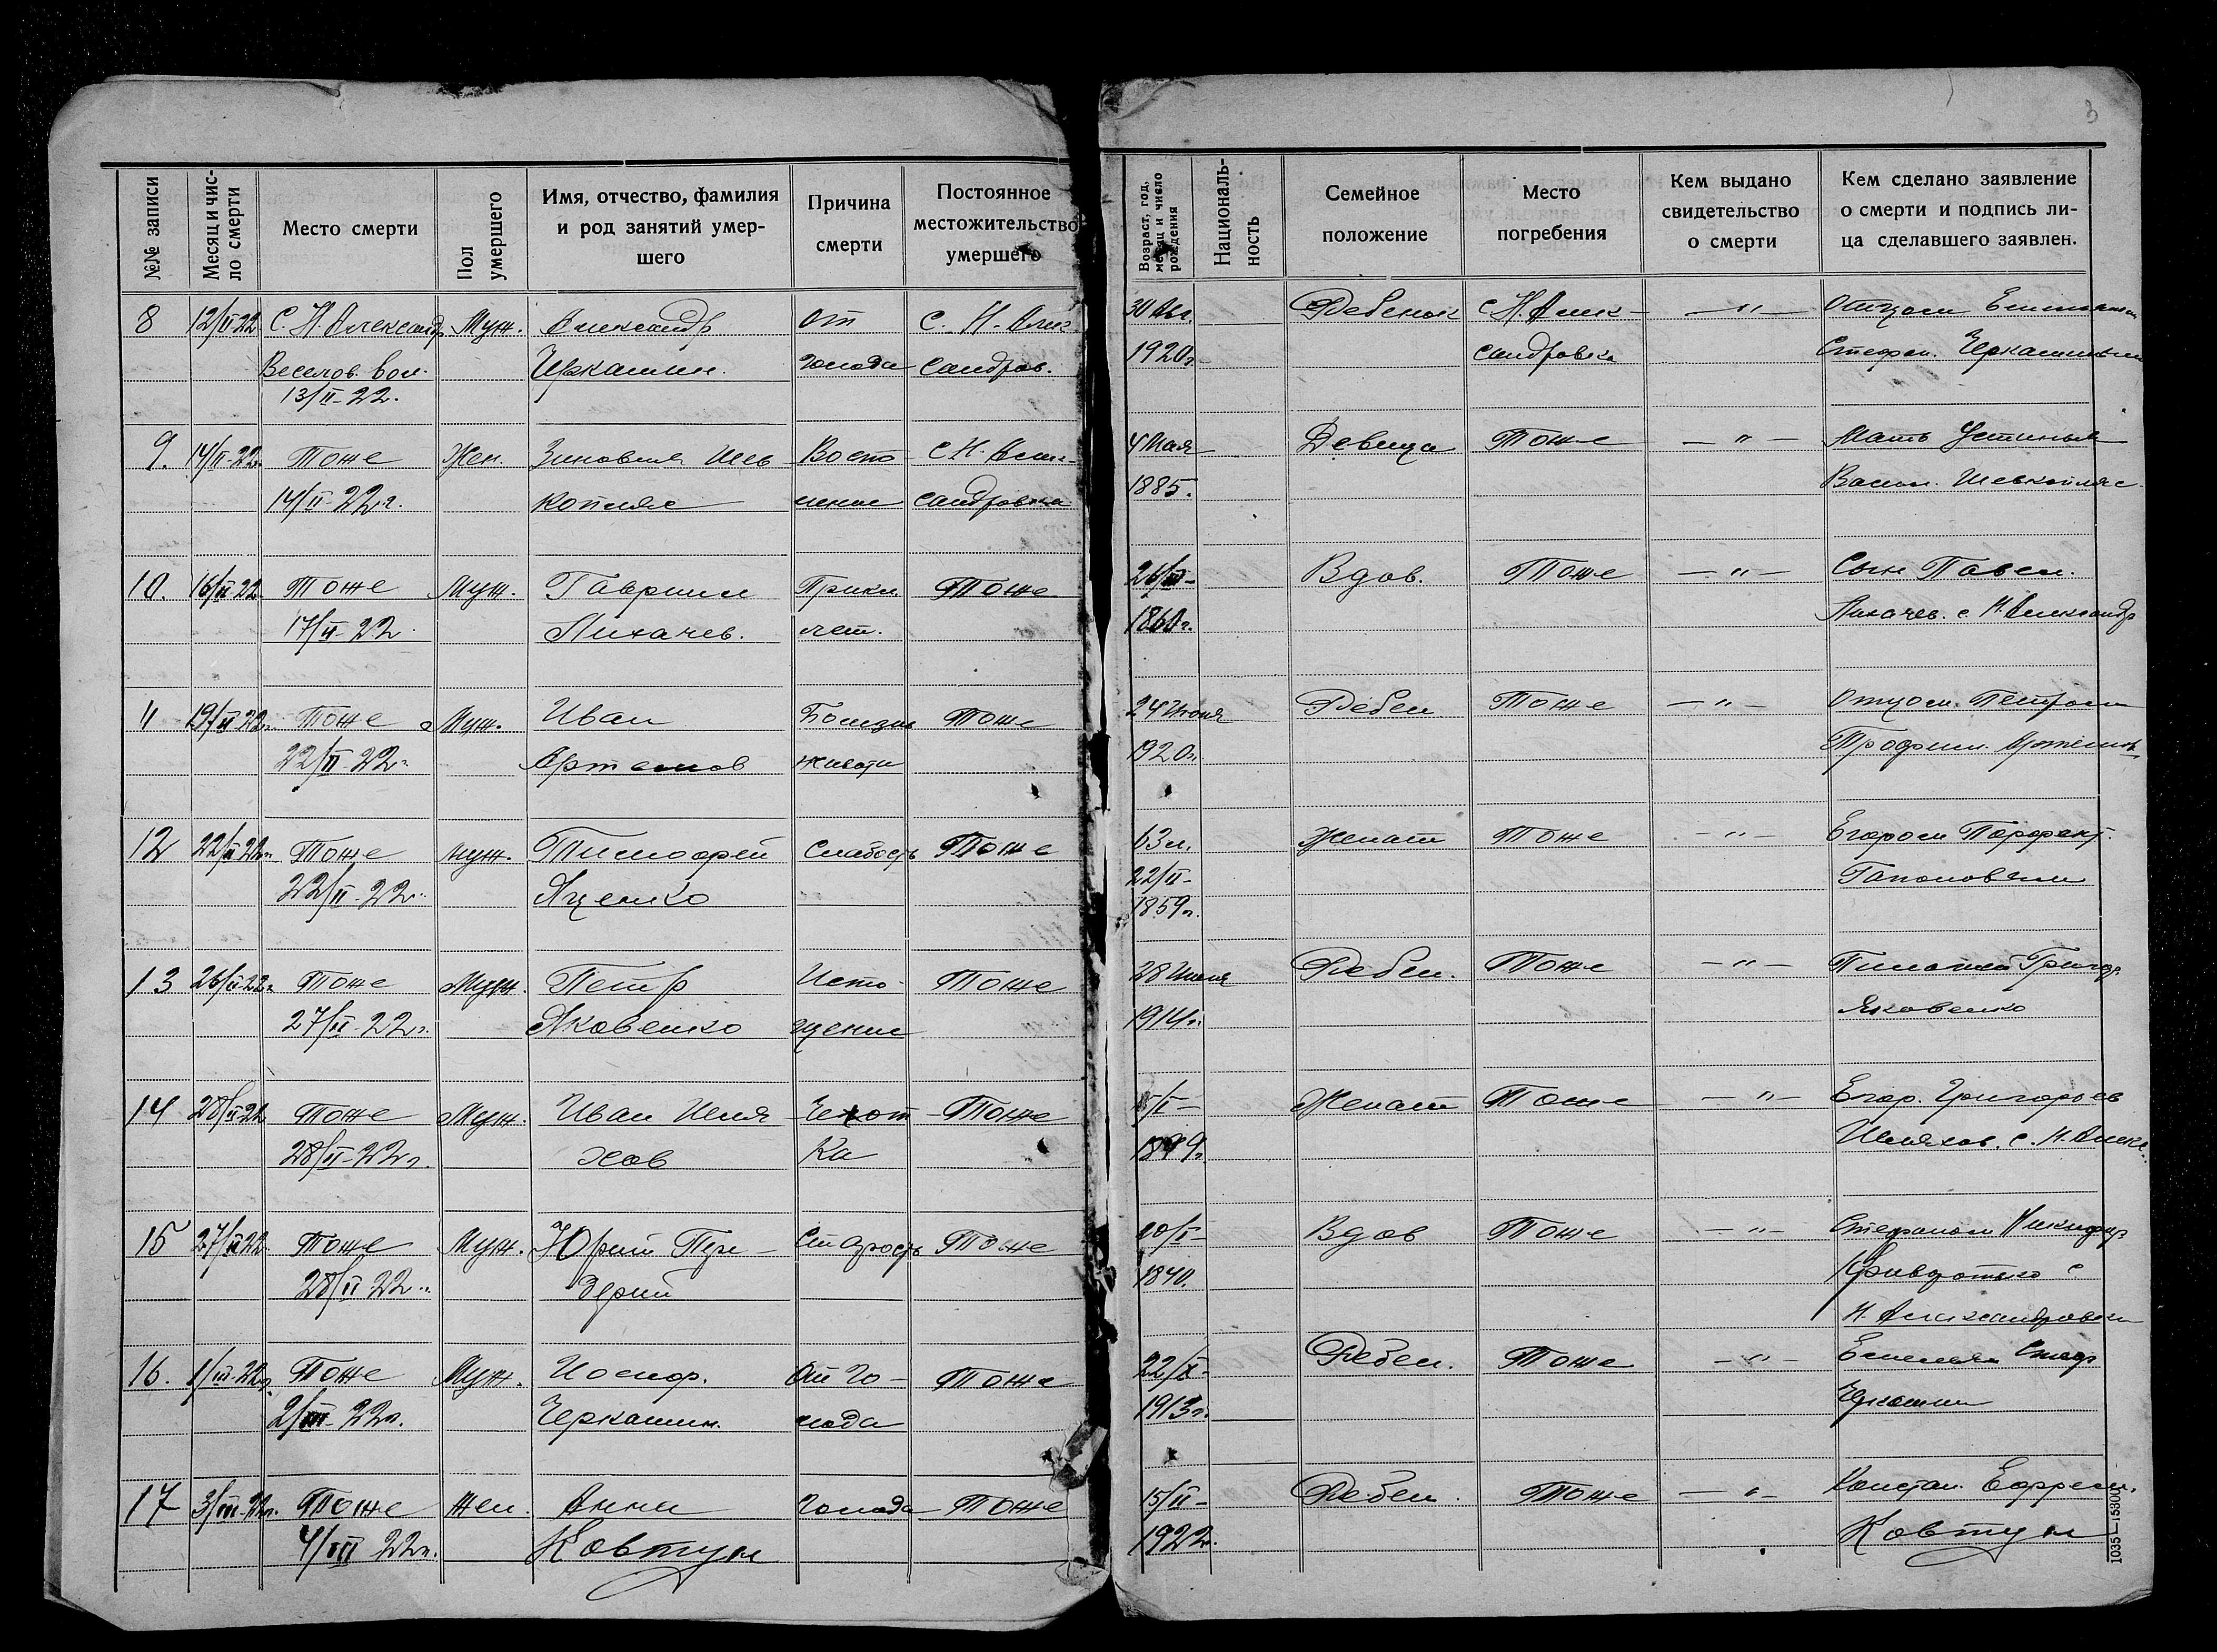 3
№№ записи
Месяц и чис-
ло смерти
Место смерти
Пол
умершего
Имя, отчество, фамилия
и род занятий умер-
шего
Причина
смерти
Постоянное
местожительство
умершего
Возраст, год,
месяц и число
рождения
Националь-
ность
Семейное
положение
Место
погребения
Кем выдано
свидетельство
о смерти
Кем сделано заявление
о смерти и подпись ли-
ца сделавшего заявлен.
8 12/II-22 С. Н. Александр. Муж. Александр от С. Н. Алек
Веселов. вол. Черкашин. голода сандров.
13/II-22.
30 Авг. Ребенок С. Н. Алек- — " — Отцом
1920г. сандровка Стефан. Черкашиным
9. 14/II-22г. Тоже Жен. Зиновия Шев Воспа С. Н. Алек-
14/II-22г. копляс ление сандровка
4 Мая Девица Тоже — " — Мать Устинья
1885. Васил. Шевкопляс.
10. 16/II-22 Тоже Муж. Гавриил Тоже
17/II-22. Лихачев.
26/III- Вдов. Тоже — " — Сын Павел.
1860г. Лихачев. с. Н. Александр
11 19/II-22г. Тоже Муж. Иван Болезнь Тоже
22/II-22г. Артемов живота
24 Июня Ребен Тоже — " — Отцом Петром
1920г. Трофим. Артемов
12 22/II-22г. Тоже муж. Тимофей Слабость Тоже
22/II-22г. Яценко
63 л. Женат Тоже — " — Егором
22/II- Гапоновым
1859г.
13 26/II-22г. Тоже Муж. Петр Исто- Тоже
27/II-22г. Яковенко щение
28 Июля Ребен. Тоже — " — Григор.
1914г. Яковенко
14 28/II-22 Тоже Муж. Иван Шля Чехот- Тоже
28/II-22г. хов ка
Женат Тоже — " — Егор. Григорьев
Шляхов. с. Н. Алекс.
15 27/II-22. Тоже Муж. Юрий Пун- Старость Тоже
28/II 22г. дерий
Вдов Тоже — " — Стефаном Никифор
1840. с.
Н. Александровки
16. 1/III-22г. Тоже Муж. Иосиф. От го- Тоже
2/III-22г. Черкашин. лода
Ребен. Тоже — " — Емельян Стеф
1913г. Черкашин
17 3/III-22г. Тоже жен. Анна голода Тоже
4/III 22г. Ковтун
15/II- Ребен. Тоже — " — Констан. Ефрем.
1922г. Ковтун
1035—15300